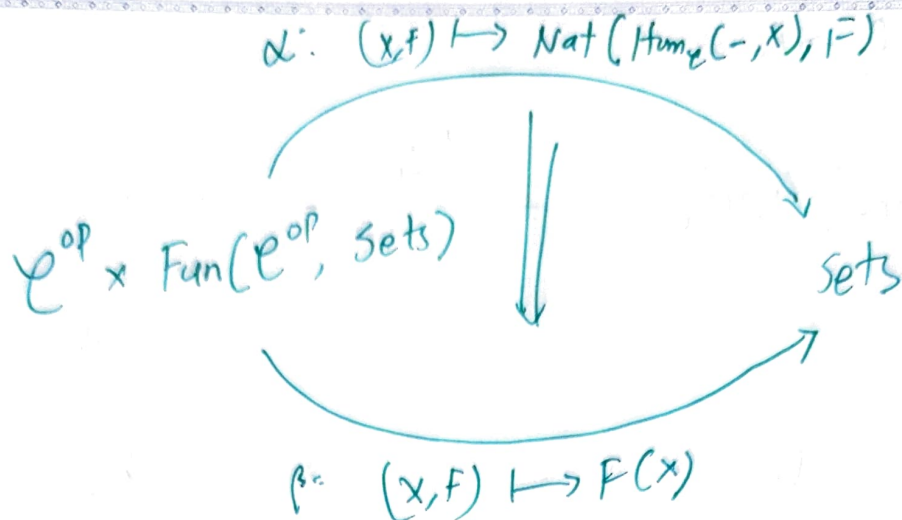 α: (x,F) ⟼ Nat(Hom_𝒞(-,x), F)
𝒞^op × Fun(𝒞^op, Sets)
Sets
β: (x,F) ⟼ F(x)